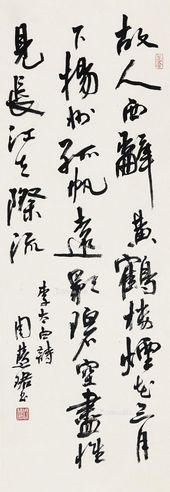 故人西辭黄鶴楼煙花三月
下揚州孤帆遠影碧空盡惟
見長江天際流
李太白詩
周慧珺書